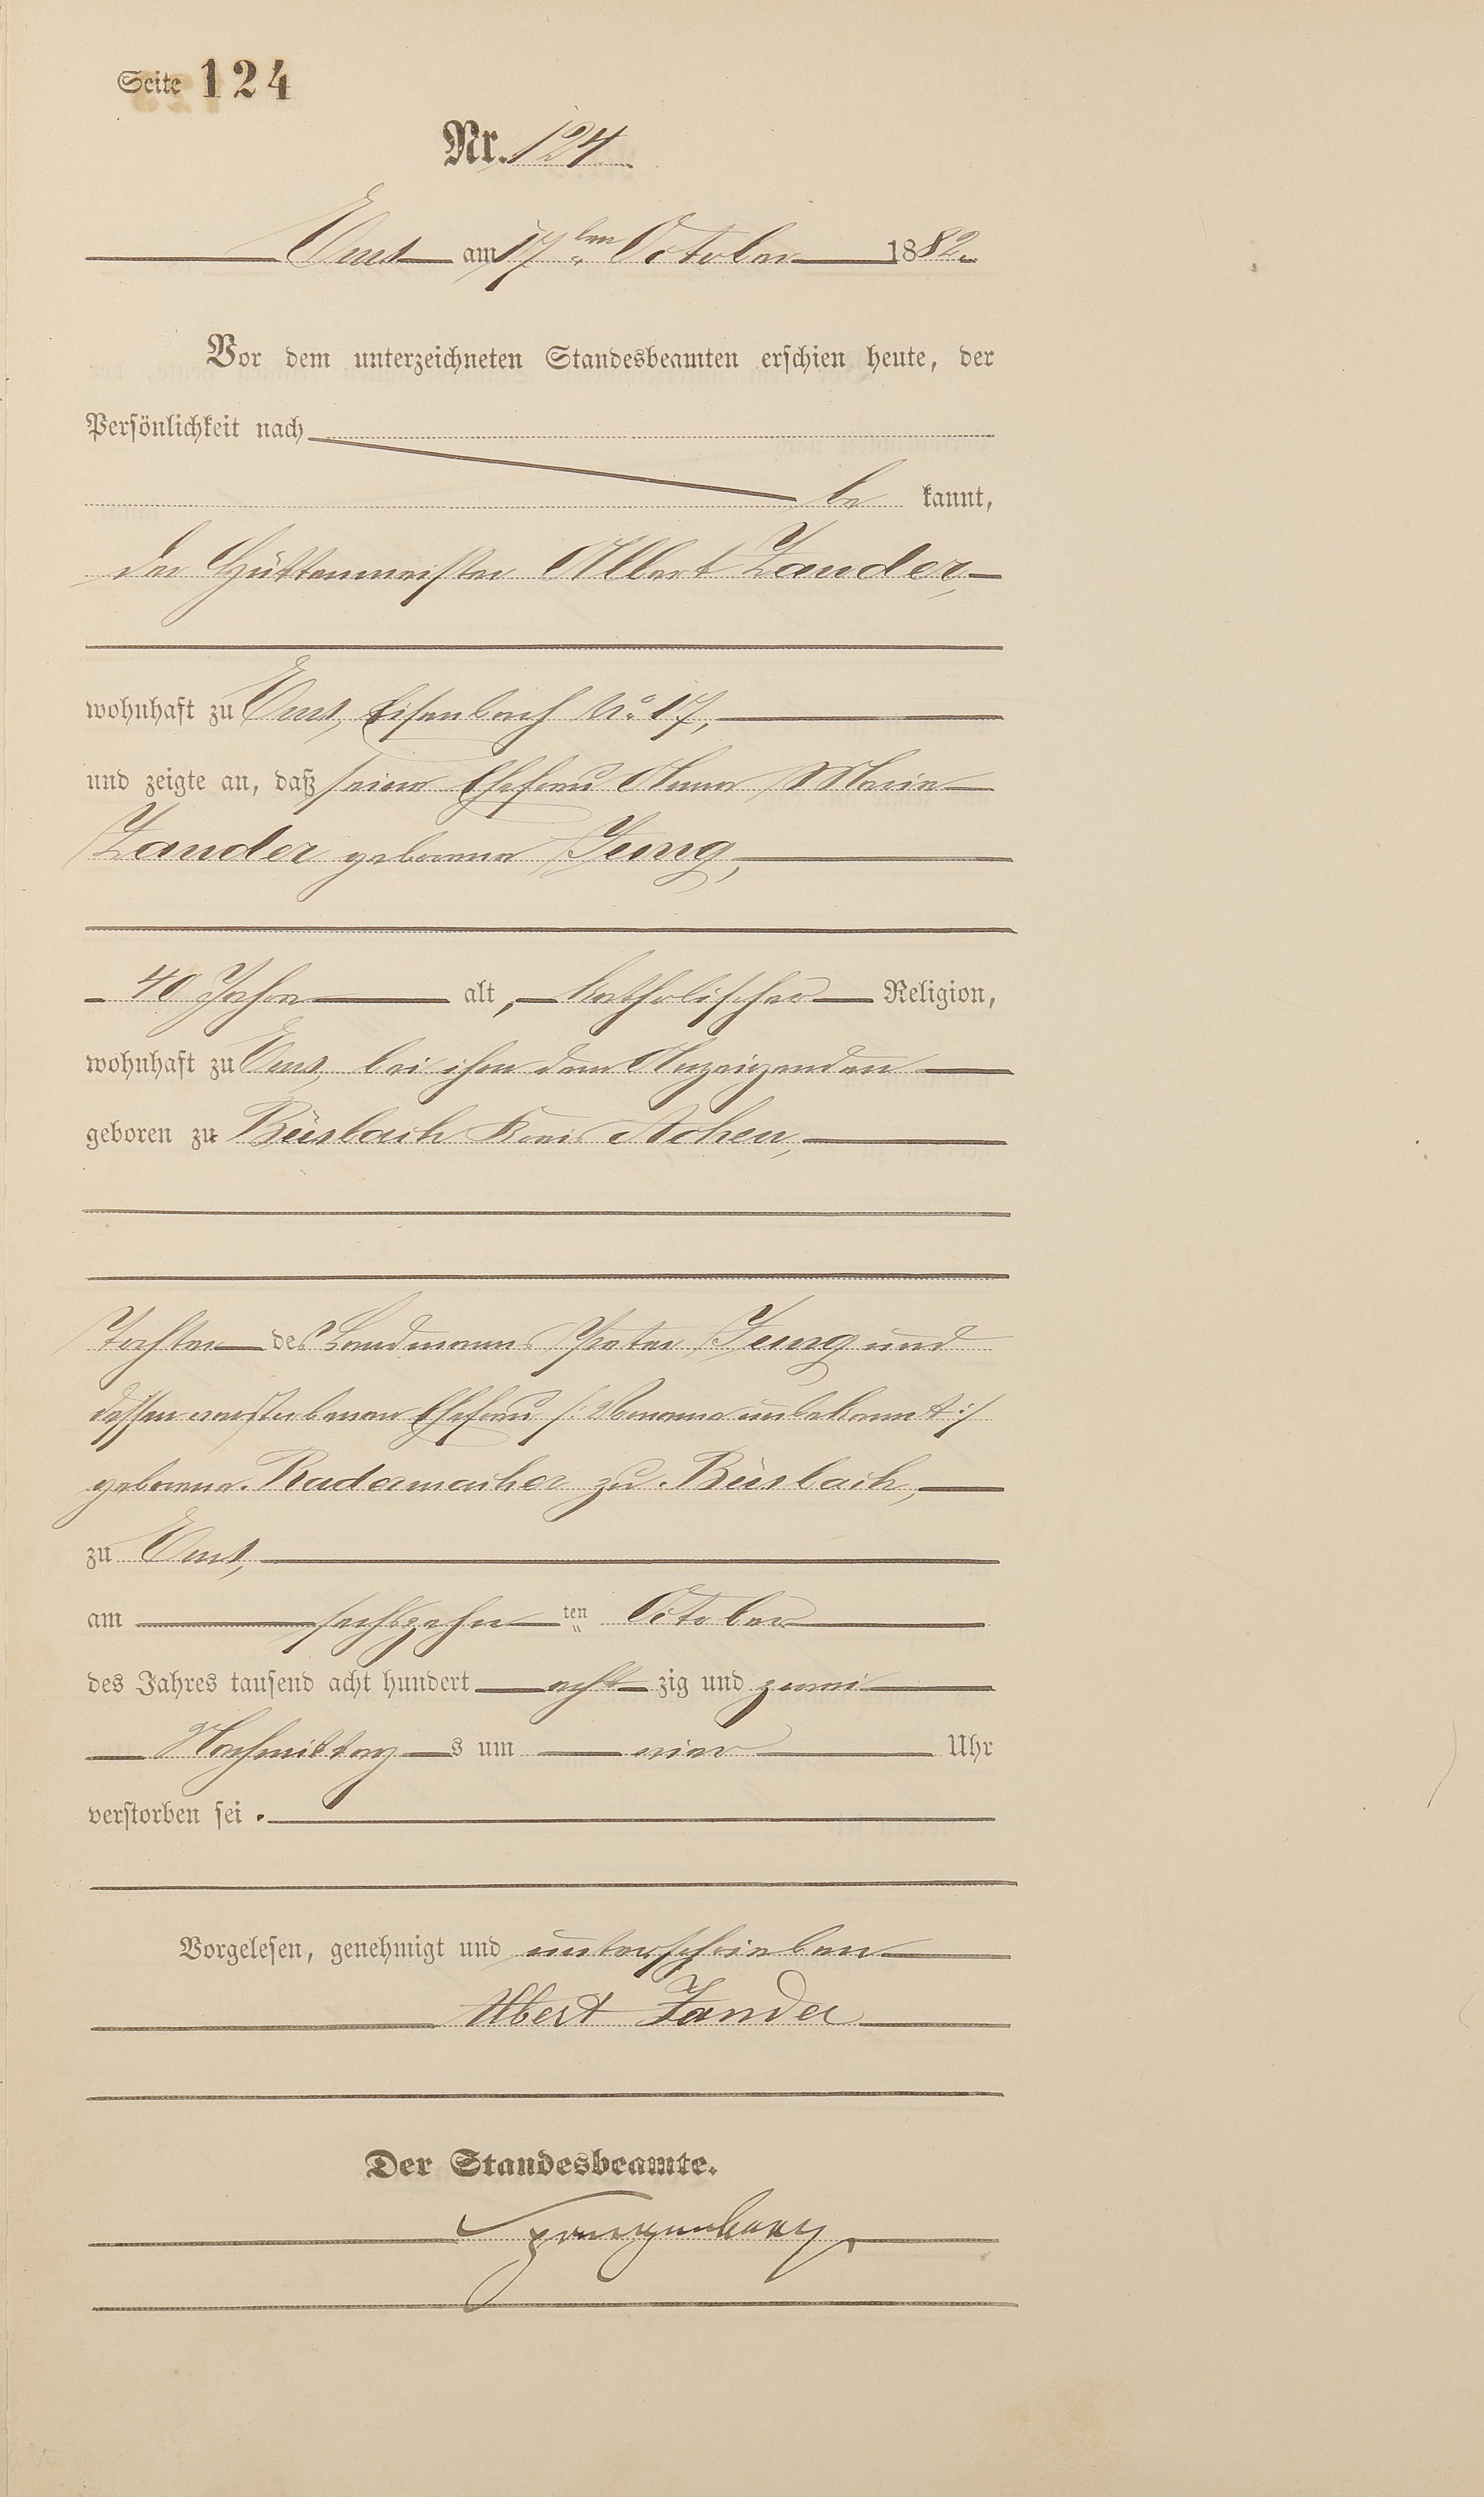 Seite 124
Nr. 124.
Ems am 17ten October 1882.
Vor dem unterzeichneten Standesbeamten erschien heute, der
Persönlichkeit nach
be kannt,
der Hüttenmeister Albert Zander,
wohnhaft zu Ems, Eisenbach No. 17,
und zeigte an, daß seine Ehefrau Anna Maria
Zander geborene Jung,
40 Jahre alt, katholischer Religion,
wohnhaft zu Ems, bei ihm dem Anzeigenden
geboren zu Büsbach Kreis Achen,
Tochter des Landmanns Peter Jung und
dessen verstorbenen Ehefrau /: Vorname unbekannt :/
geborene Radermacher zu Büsbach,
zu Ems,
am sechszehn ten October
des Jahres tausend acht hundert acht zig und zwei
Nachmittag s um vier Uhr
verstorben sei.
Vorgelesen, genehmigt und unterschrieben
Albert Zander
Der Standesbeamte.